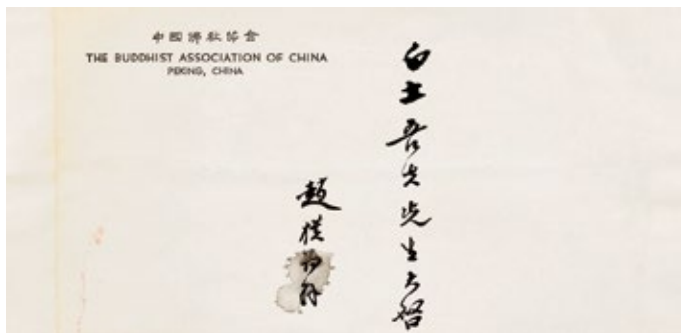 中國佛教協會
THE BUDDHIST ASSOCIATION OF CHINA
PEKING, CHINA
白土吾夫先生大啓
趙樸初